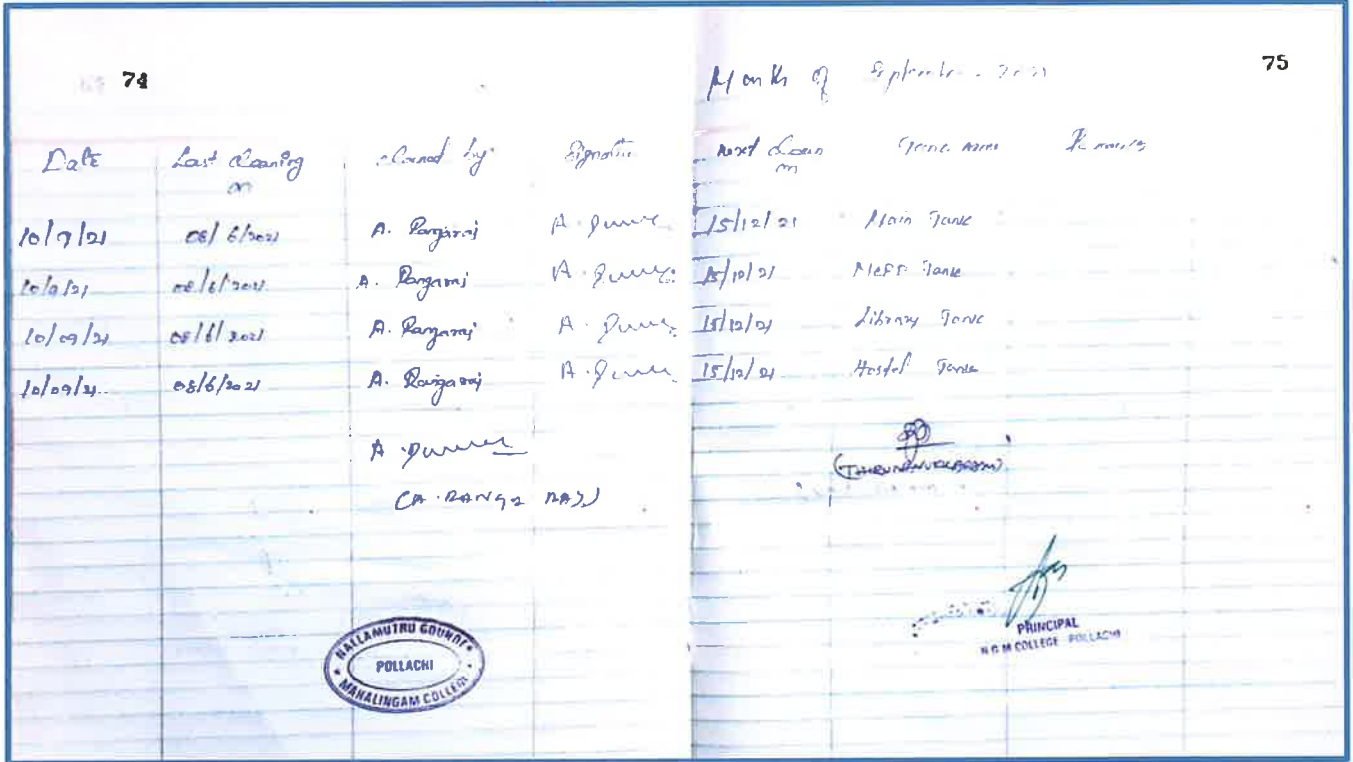 74
75
Month of September - 2021
Date Last cleaning on cleaned by Signature Next Clean on Tank name Remarks
10/9/21 08/6/2021 A. Rangaraj 15/12/21 Main Tank
10/9/21 08/6/2021 A. Rangaraj 15/12/21 Mess Tank
10/09/21 08/6/2021 A. Rangaraj 15/12/21 Library Tank
10/09/21 08/6/2021 A. Rangaraj 15/12/21 Hostel Tank
(A. RANGA RAJ)
NALLAMUTHU GOUNDER
POLLACHI
MAHALINGAM COLLEGE
PRINCIPAL
N G M COLLEGE POLLACHI